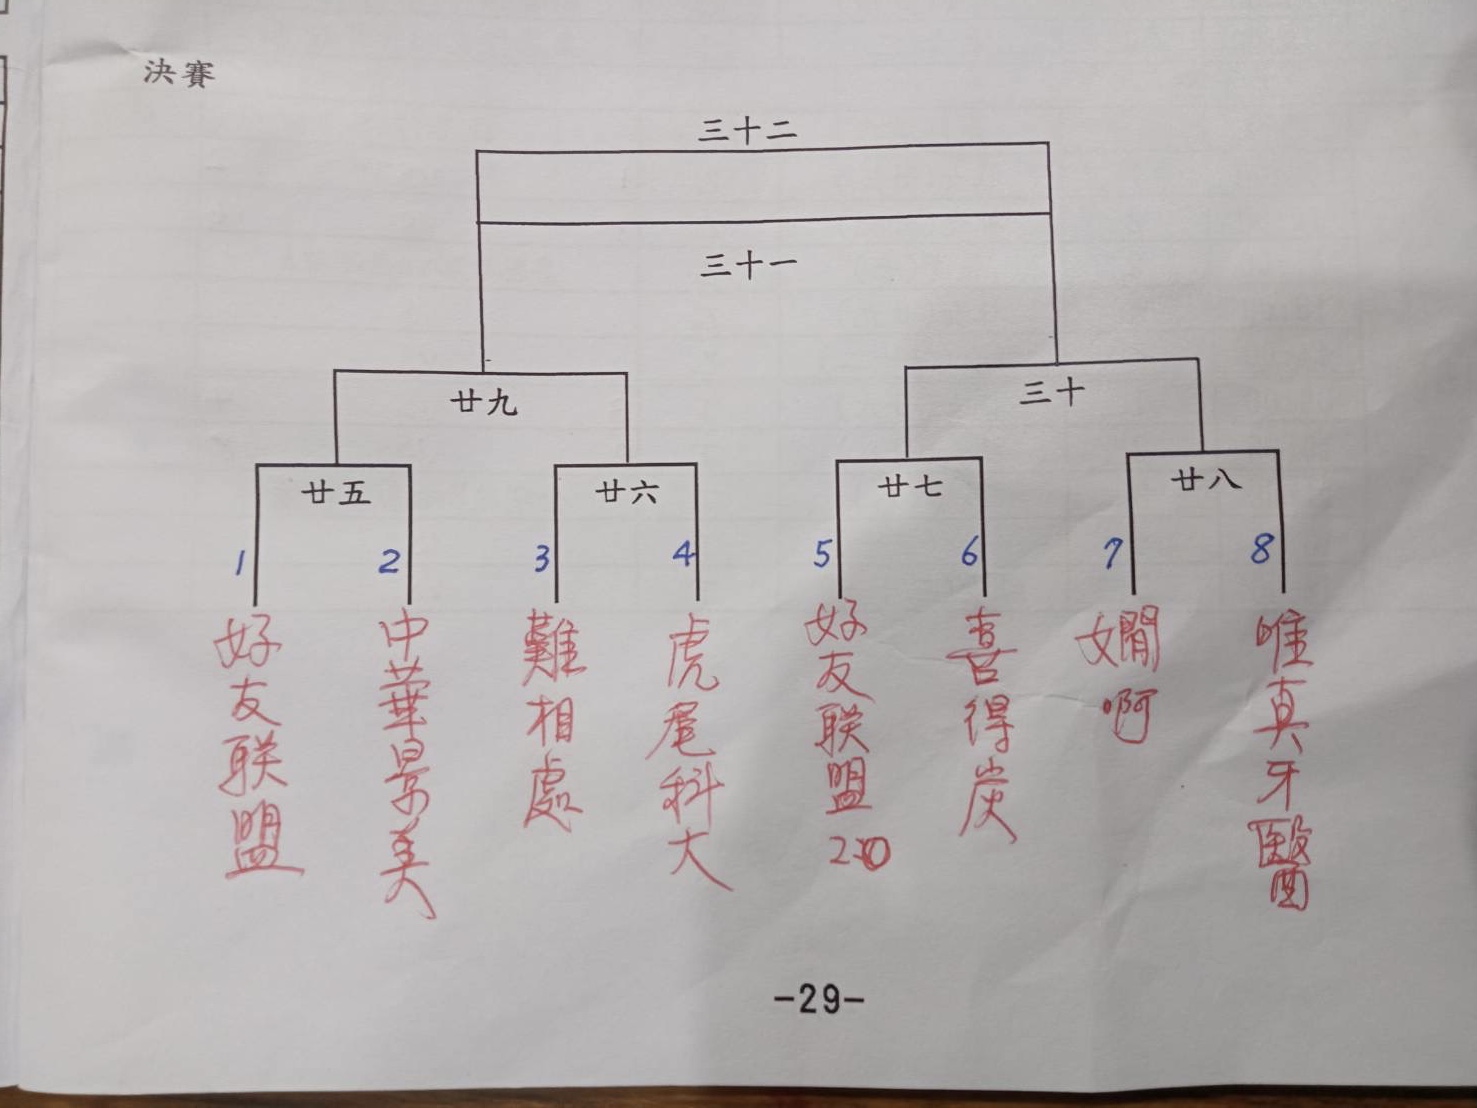 決賽
三十二
三十一
廿九
三十
廿五
廿六
廿七
廿八
1
2
3
4
5
6
7
8
好友联盟
中華景美
難相處
虎尾科大
好友联盟2.0
喜得炭
嫺啊
唯真牙醫
-29-